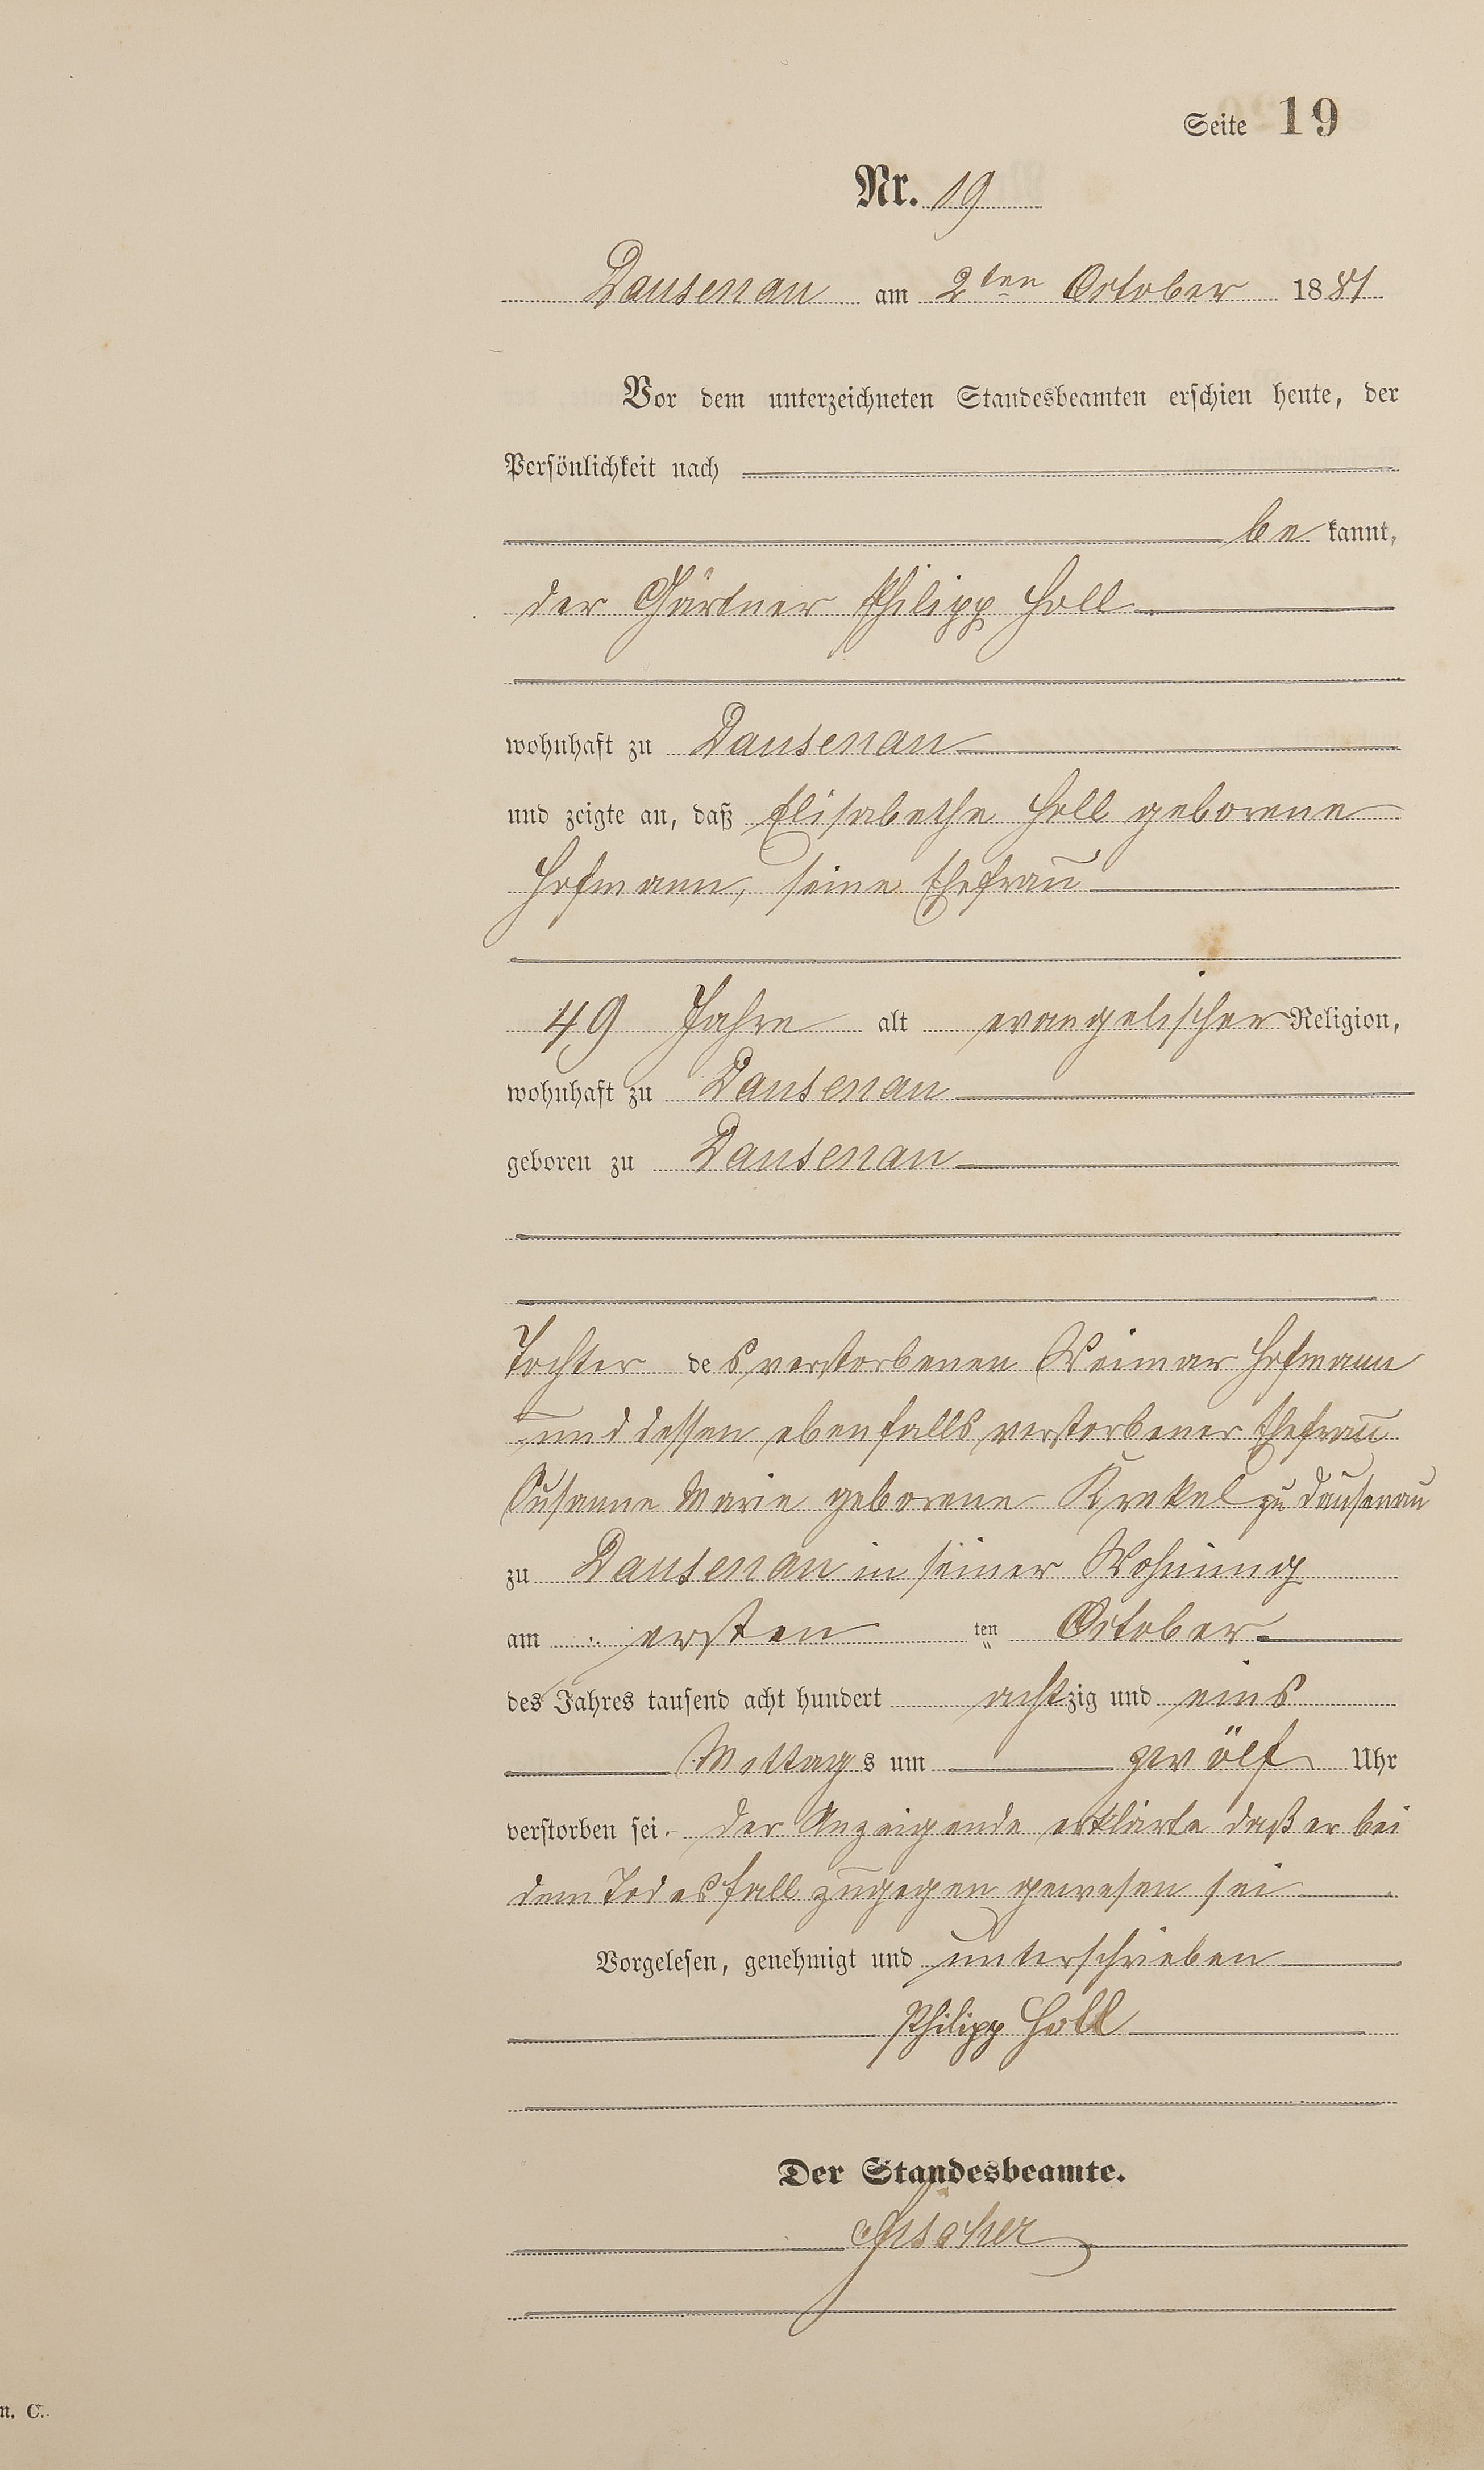 Seite 19
Nr. 19
Dausenau am 2ten October 1881
Vor dem unterzeichneten Standesbeamten erschien heute, der
Persönlichkeit nach
be kannt,
der Gärtner Philipp Holl
wohnhaft zu Dausenau
und zeigte an, daß Elisabetha Holl geborene
Hofmann, seine Ehefrau
49 Jahre alt evangelischer Religion,
wohnhaft zu Dausenau
geboren zu Dausenau
Tochter des verstorbenen Weimar Hofmann
und dessen ebenfalls verstorbener Ehefrau
Susanne Marie geborene Krekel zu Dausenau
zu Dausenau in seiner Wohnung
am ersten ten October
des Jahres tausend acht hundert achtzig und eins
Mittags um zwölf Uhr
verstorben sei. Der Anzeigende erklärte daß er bei
dem Todesfall zugegen gewesen sei
Vorgelesen, genehmigt und unterschrieben
Philipp Holl
Der Standesbeamte.
Fischer
n. C.